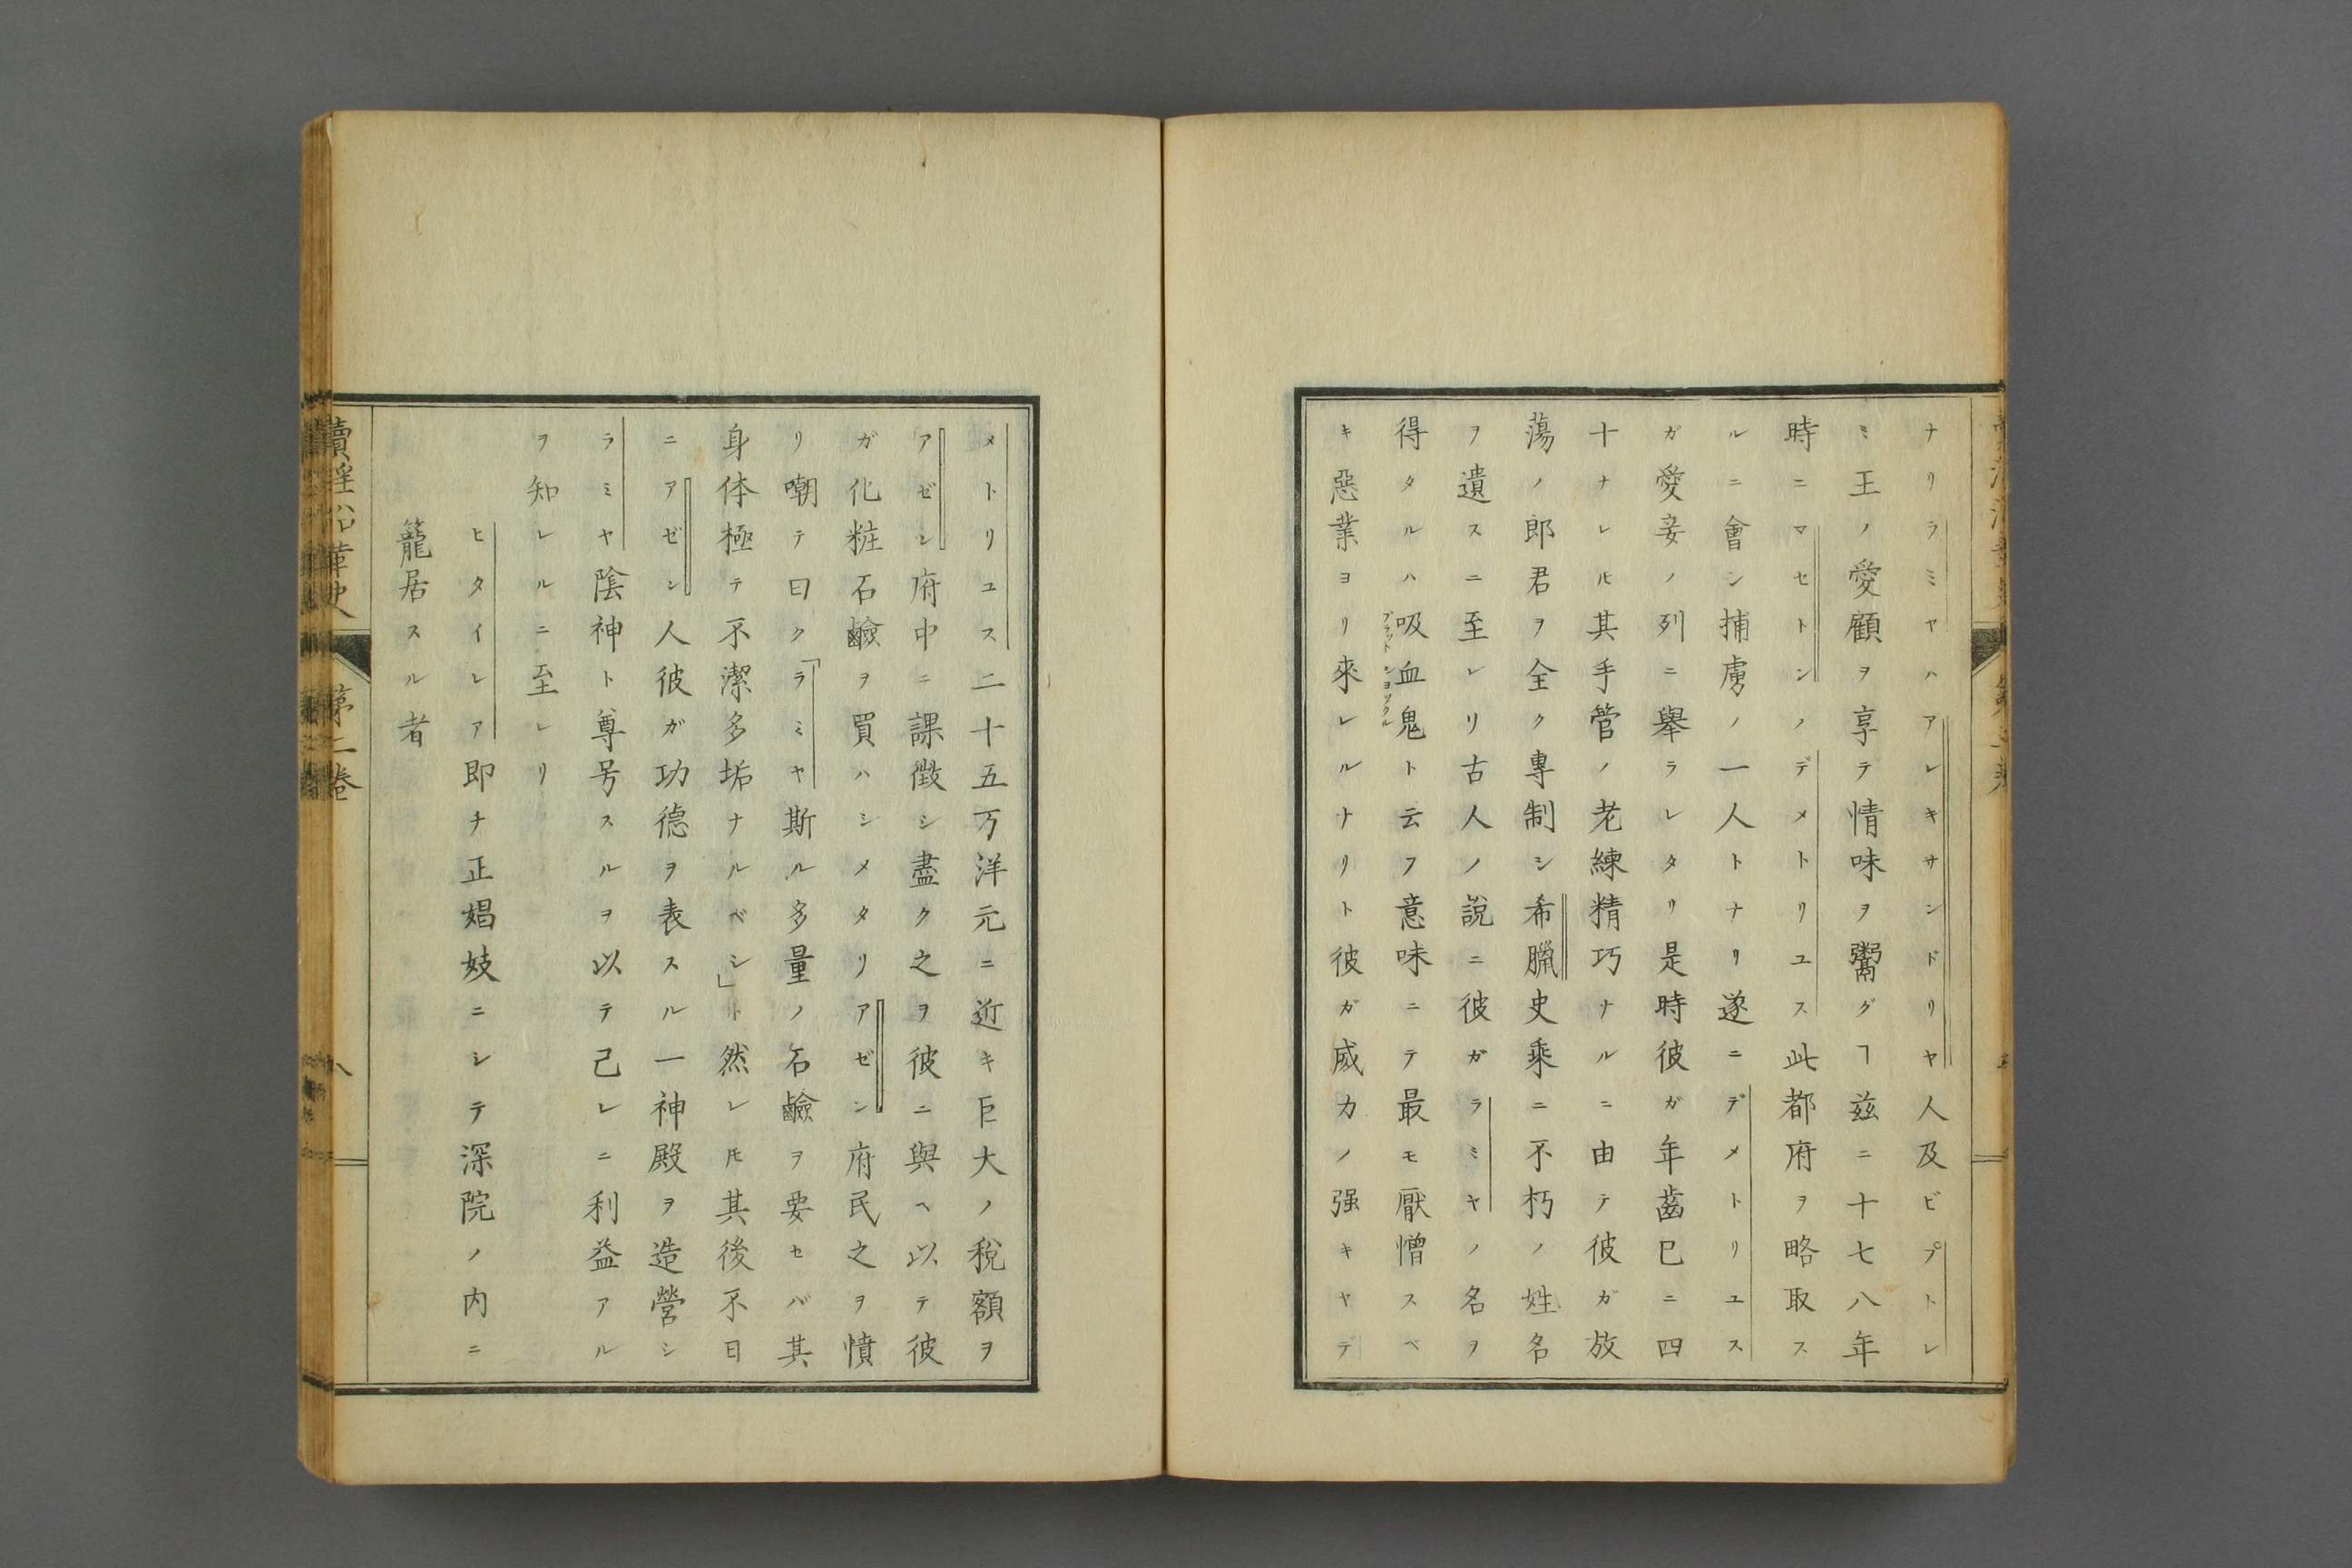 ナリラミヤハアレキサンドリヤ人及ビプトレ
ミ王ノ愛顧ヲ享テ情味ヲ鬻グヿ茲ニ十七八年
時ニマセトンノデメトリユス此都府ヲ略取ス
ルニ會シ捕虜ノ一人トナリ遂ニデメトリユス
ガ愛妾ノ列ニ舉ラレタリ是時彼ガ年齒已ニ四
十ナレ𪜈其手管ノ老練精巧ナルニ由テ彼ガ放
蕩ノ郎君ヲ全ク專制シ希臘史乘ニ不朽ノ姓名
ヲ遺スニ至レリ古人ノ說ニ彼ガラミヤノ名ヲ
得タルハ吸血鬼ト云フ意味ニテ最モ厭憎スベ
ブラットシヨツクル
キ惡業ヨリ來レルナリト彼ガ威力ノ强キヤデ
メトリユス二十五万洋元ニ近キ巨大ノ稅額ヲ
アゼン府中ニ課徴シ盡ク之ヲ彼ニ與ヘ以テ彼
ガ化粧石鹼ヲ買ハシメタリアゼン府民之ヲ憤
リ嘲テ曰ク「ラミヤ斯ル多量ノ石鹼ヲ要セバ其
身体極テ不潔多垢ナルベシ」ト然レ𪜈其後不日
ニアゼン人彼ガ功德ヲ表スル一神殿ヲ造營シ
ラミヤ陰神ト尊号スルヲ以テ己レニ利益アル
ヲ知レルニ至レリ
ヒタイレア即チ正娼妓ニシテ深院ノ内ニ
籠居スル者
賣淫沿革史
第二卷
八